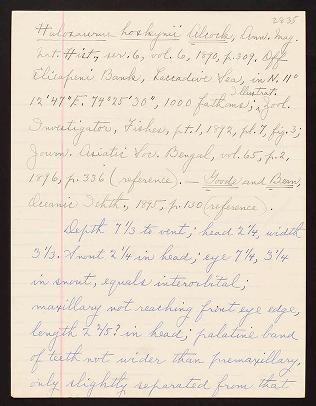 2835
Halosaurus hoskynii Alcock, Ann. Mag.
Nat. Hist., ser. 6, vol. 6, 1890, p. 309. Off
Elicapini Bank, Laccadive Sea, in N. 11°
12' 47" E. 74° 25' 30", 1000 fathoms; Illustrat. Zool.
Investigator, Fishes, pt. 1, 1892, pl. 7, fig. 3;
Journ. Asiatic Soc. Bengal, vol. 65, p. 2,
1896, p. 336 (reference). — Goode and Bean,
Oceanic Ichth., 1895, p. 130 (reference).
Depth 7 1/3 to vent; head 2 1/4, width
3 1/3. Snout 2 1/4 in head; eye 7 1/4, 3 1/4
in snout, equals interorbital;
maxillary not reaching front eye edge,
length 2 4/5? in head; palatine band
of teeth not wider than premaxillary,
only slightly separated from that